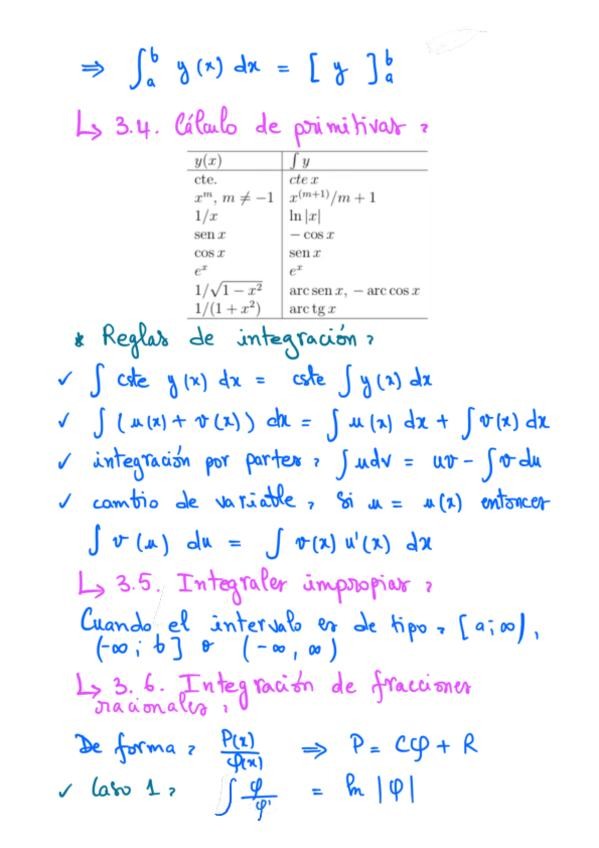 ⇒ ∫ₐᵇ y(x) dx = [ y ]ₐᵇ
↳ 3.4. Cálculo de primitivas :
y(x) ∫ y
cte. cte x
xᵐ, m ≠ −1 x⁽ᵐ⁺¹⁾/m + 1
1/x ln |x|
sen x − cos x
cos x sen x
eˣ eˣ
1/√1 − x² arc sen x, − arc cos x
1/(1 + x²) arc tg x
* Reglas de integración :
✓ ∫ cste y(x) dx = cste ∫ y(x) dx
✓ ∫ (u(x) + v(x)) dx = ∫ u(x) dx + ∫ v(x) dx
✓ integración por partes : ∫ udv = uv - ∫ v du
✓ cambio de variable : Si u = u(x) entonces
∫ v(u) du = ∫ v(x) u'(x) dx
↳ 3.5. Integrales impropias :
Cuando el intervalo es de tipo : [a; ∞),
(-∞; b] o (-∞, ∞)
↳ 3.6. Integración de fracciones
racionales :
De forma : P(x)/φ(x) ⇒ P = Cφ + R
✓ Caso 1 : ∫ φ/φ' = ln |φ|